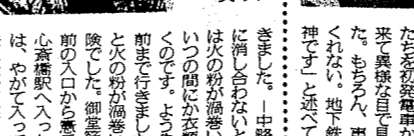 たちを初発電車
来て異様な目で見
た。もちろん、車
くれない。地下鉄
神です」と述べて
きました。―中略
に消し合わないと
は火の粉が渦巻い
いつの間にか衣類
くのです。よう
前まで行きまし
と火の粉が渦巻
険でした。御堂筋
前の入口から
心斎橋駅へ入っ
は、やがて入っ